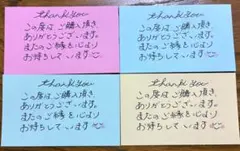 thank you
この度はご購入頂き
ありがとうございます。
またのご縁を心より
お待ちしています
thank you
この度はご購入頂き
ありがとうございます。
またのご縁を心より
お待ちしています
thank you
この度はご購入頂き
ありがとうございます。
またのご縁を心より
お待ちしています
thank you
この度はご購入頂き
ありがとうございます。
またのご縁を心より
お待ちしています